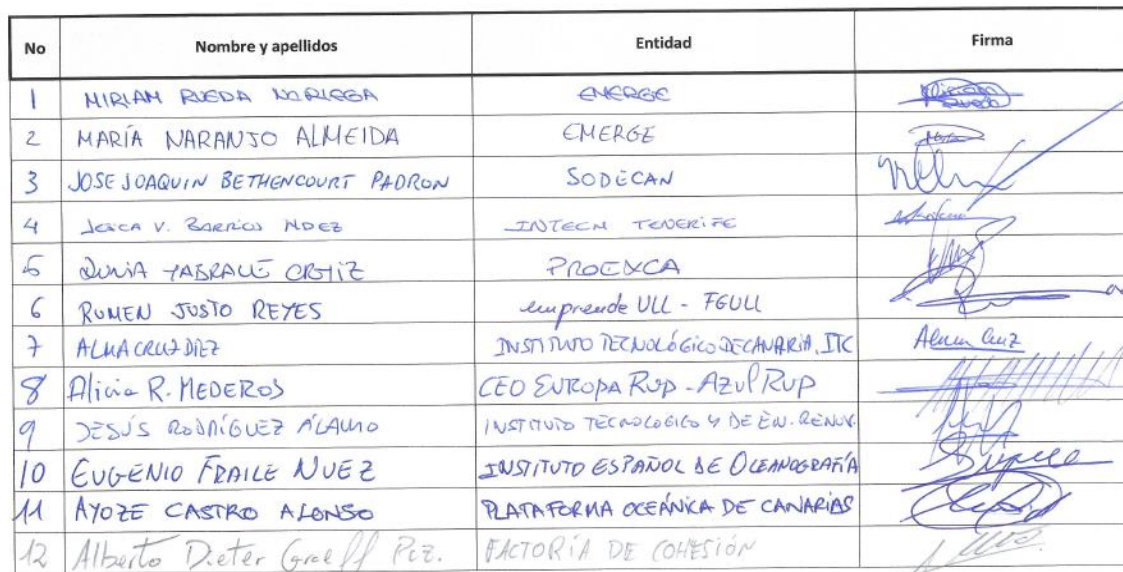 No Nombre y apellidos Entidad Firma
1 MIRIAM RUEDA NORIEGA EMERGE Miriam Rueda
2 MARÍA NARANJO ALMEIDA EMERGE
3 JOSE JOAQUIN BETHENCOURT PADRON SODECAN
4 V. BARRIOS NDEZ INTECH TENERIFE
5 DUNIA ORTIZ PROEXCA
6 RUMEN JUSTO REYES emprende ULL - FGULL
7 ALMA CRUZ DIEZ INSTITUTO TECNOLÓGICO DE CANARIA, ITC Alma Cruz
8 Alicia R. MEDEROS CEO EUROPA RUP - AZUL RUP
9 JESÚS RODRÍGUEZ ÁLAMO INSTITUTO TECNOLOGICO Y DE EN. RENOV.
10 EUGENIO FRAILE NUEZ INSTITUTO ESPAÑOL DE OCEANOGRAFÍA
11 AYOZE CASTRO ALONSO PLATAFORMA OCEÁNICA DE CANARIAS
12 Alberto Dieter Graeff Pez. FACTORÍA DE COHESIÓN